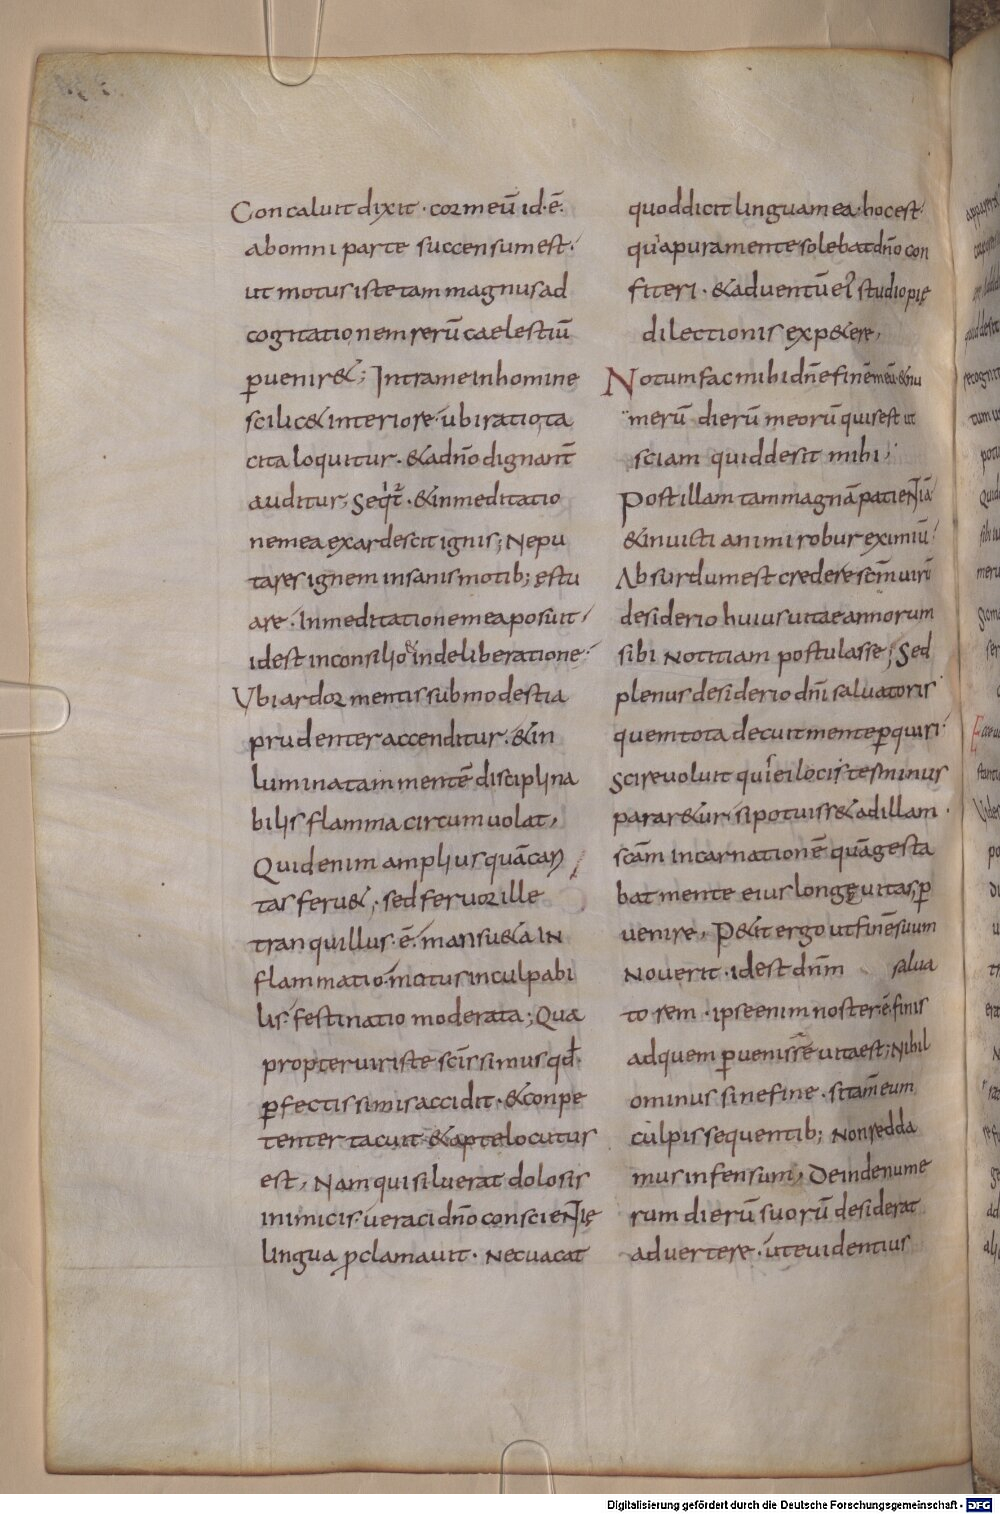 Concaluit dixit · cor meū id · ē·
ab omni parte succensum est·
ut motus iste tam magnus ad
cogitationem rerū caelestiū
ꝑuenir&; Intra me in homine
scilic& interiore· ubi ratio ta
cita loquitur· & a dn̄o dignant̄
auditur; Seqt̄· & in meditatio
ne mea exardescit ignis; Ne pu
tares ignem insanis motib; ęstu
are· In meditatione mea posuit·
id est in consilio & in deliberatione·
Vbi ardor mentis sub modestia
prudenter accenditur· & in
luminatam mentē disciplina
bilis flamma circumuolat,
Quid enim amplius quā cari
tas feru&; sed feruor ille
tranquillus · ē· mansu&a in
flammatio· motus inculpabi
lis· festinatio moderata; Qua
propter uir iste scīssimus qd̄·
ꝑfectissimis accidit· & conpe
tenter tacuit & apte locutus
est, Nam qui siluerat dolosis
inimicis· ueraci dn̄o conscientię
lingua ꝓclamauit· Nec uacat
quod dicit lingua mea· hoc est·
qua pura mente solebat dn̄o con
fiteri· & aduentū ei' studio pię
dilectionis exp&ere,
Notum fac mihi dn̄e finē meū & nu
merū dierū meorū qui est ut
sciam quid desit mihi;
Post illam tam magnā patientiā
& inuicti animi robur eximiū·
Absurdum est credere scm̄ uirū
desiderio huius uitae annorum
sibi notitiam postulasse; Sed
plenus desiderio dn̄i saluatoris
quem tota decuit mente ꝑquiri·
scire uoluit qui ei locis terminus
parar&ur· si potuiss& ad illam·
scām incarnationē quā gesta
bat mente eius longę uitas ꝑ
uenire, P&it ergo ut finē suum
nouerit· id est dn̄m salua
torem· ipse enim noster ē finis
ad quem ꝑuenisse uita est; Nihil
ominus sine fine· si tam̄ eum
culpis sequentib; non redda
mus infensum, Deinde nume
rum dierū suorū desiderat
aduertere· ut euidentius
Digitalisierung gefördert durch die Deutsche Forschungsgemeinschaft - DFG